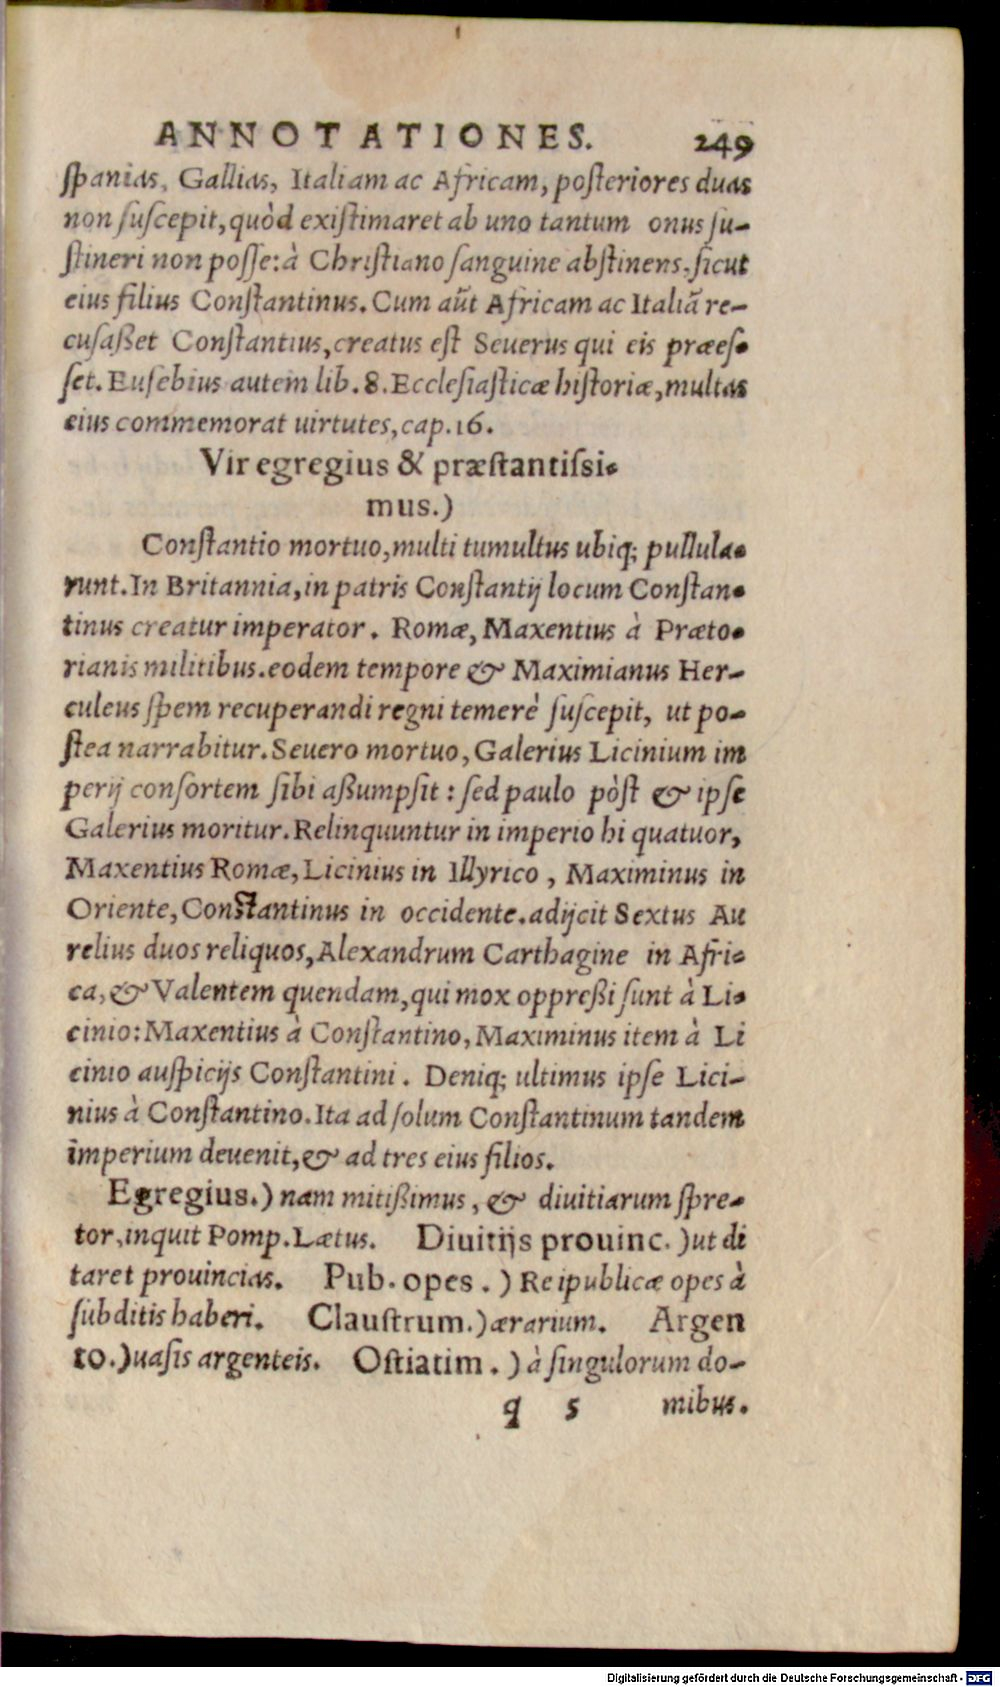 ANNOTATIONES. 249
ſpanias, Gallias, Italiam ac Africam, poſteriores duas
non ſuſcepit, quòd exiſtimaret ab uno tantum onus ſu-
ſtineri non poſſe: à Chriſtiano ſanguine abſtinens, ſicut
eius filius Conſtantinus. Cum aūt Africam ac Italiā re-
cuſaßet Conſtantius, creatus eſt Seuerus qui eis præeſ-
ſet. Euſebius autem lib. 8. Eccleſiaſticæ hiſtoriæ, multas
eius commemorat uirtutes, cap. 16.
Vir egregius & præſtantiſsi-
mus.)
Conſtantio mortuo, multi tumultus ubiq; pullula-
runt. In Britannia, in patris Conſtantij locum Conſtan-
tinus creatur imperator. Romæ, Maxentius à Præto-
rianis militibus. eodem tempore & Maximianus Her-
culeus ſpem recuperandi regni temerè ſuſcepit, ut po-
ſtea narrabitur. Seuero mortuo, Galerius Licinium im
perij conſortem ſibi aßumpſit: ſed paulo pòſt & ipſe
Galerius moritur. Relinquuntur in imperio hi quatuor,
Maxentius Romæ, Licinius in Illyrico, Maximinus in
Oriente, Conſtantinus in occidente. adijcit Sextus Au
relius duos reliquos, Alexandrum Carthagine in Afri-
ca, & Valentem quendam, qui mox oppreßi ſunt à Li-
cinio: Maxentius à Conſtantino, Maximinus item à Li
cinio auſpicijs Conſtantini. Deniq; ultimus ipſe Lici-
nius à Conſtantino. Ita ad ſolum Conſtantinum tandem
imperium deuenit, & ad tres eius filios.
Egregius.) nam mitißimus, & diuitiarum ſpre-
tor, inquit Pomp. Lætus. Diuitijs prouinc.) ut di
taret prouincias. Pub. opes.) Reipublicæ opes à
ſubditis haberi. Clauſtrum.) ærarium. Argen
to.) uaſis argenteis. Oſtiatim.) à ſingulorum do-
q 5 mibus.
Digitalisierung gefördert durch die Deutsche Forschungsgemeinschaft - DFG